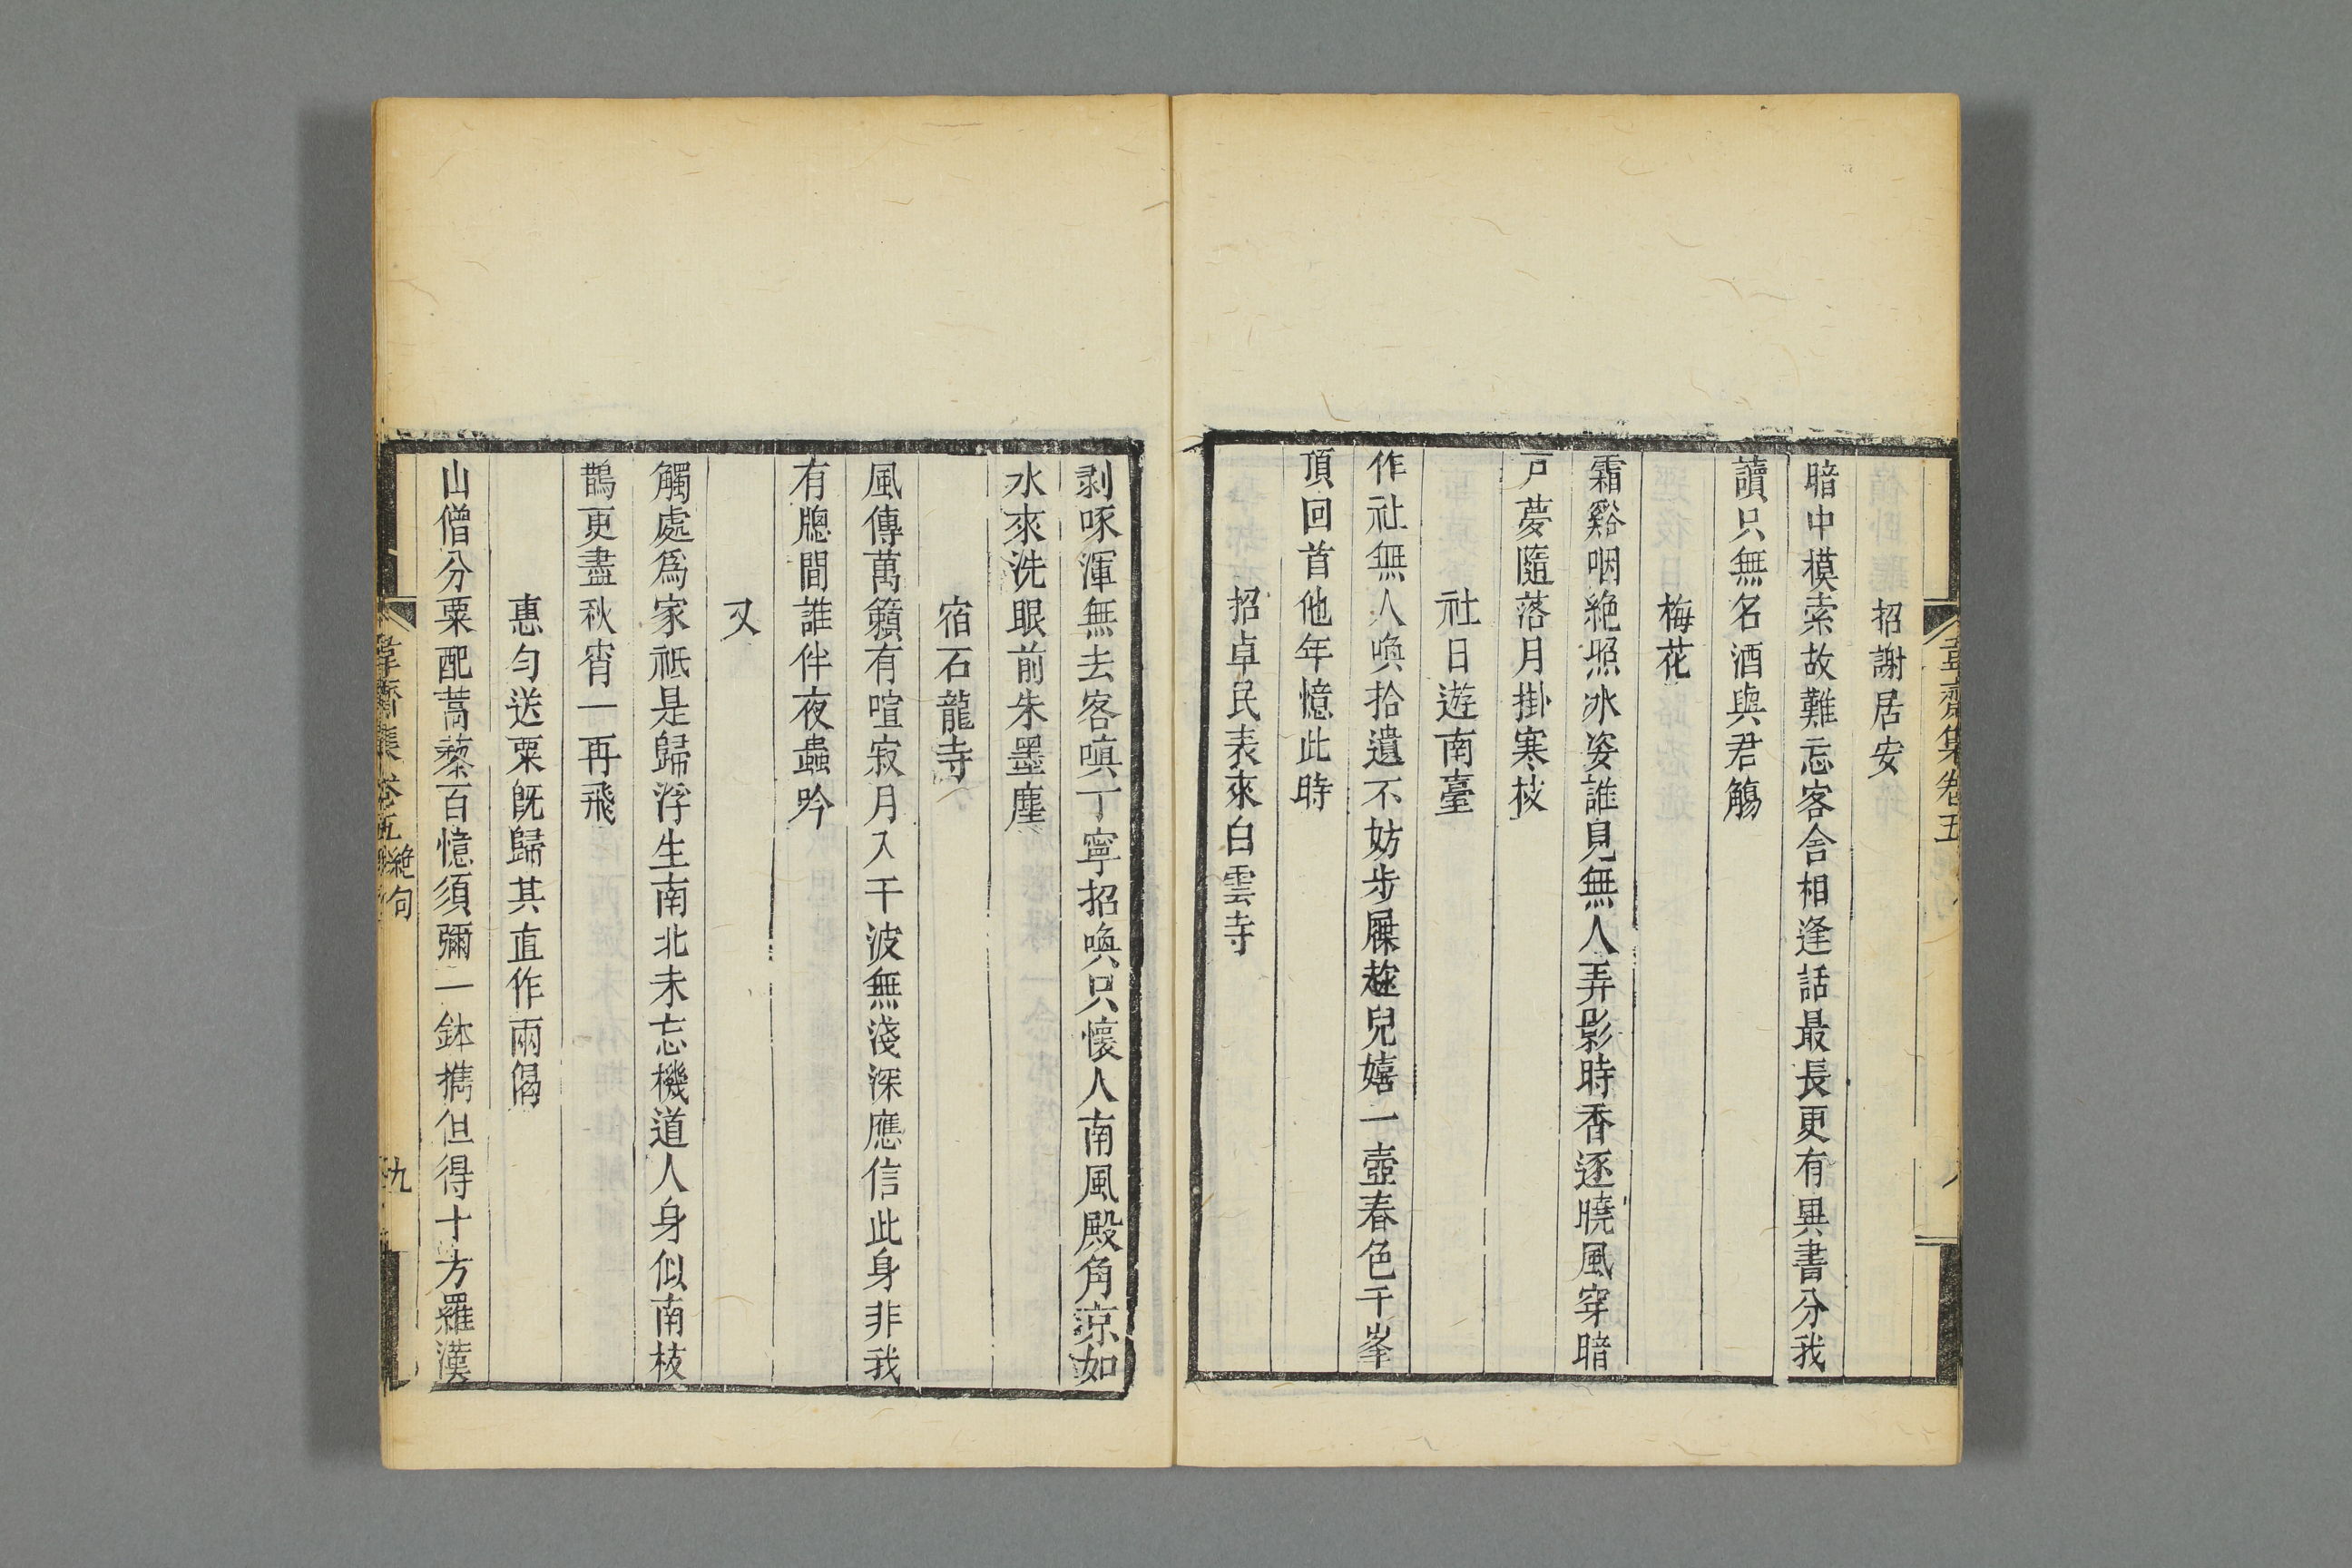 韋齋集卷五
招謝居安
暗中模索故難忘客舍相逢話最長更有異書分我
讀只無名酒與君觴
梅花
霜谿咽絶照冰姿誰見無人弄影時香逐曉風穿暗
戸夢隨落月掛寒枝
社日遊南臺
作社無人喚拾遺不妨步屧趂兒嬉一壺春色千峯
頂回首他年憶此時
招卓民表來白雲寺
剥啄渾無去客嗔丁寧招喚只懷人南風殿角凉如
水來洗眼前朱墨塵
宿石龍寺
風傳萬籟有喧寂月入千波無淺深應信此身非我
有牕間誰伴夜蟲吟
又
觸處爲家祗是歸浮生南北未忘機道人身似南枝
鵲更盡秋宵一再飛
惠勻送粟旣歸其直作兩偈
山僧分粟配蒿藜百憶須彌一鉢携但得十方羅漢
韋齋集卷五 絶句
九